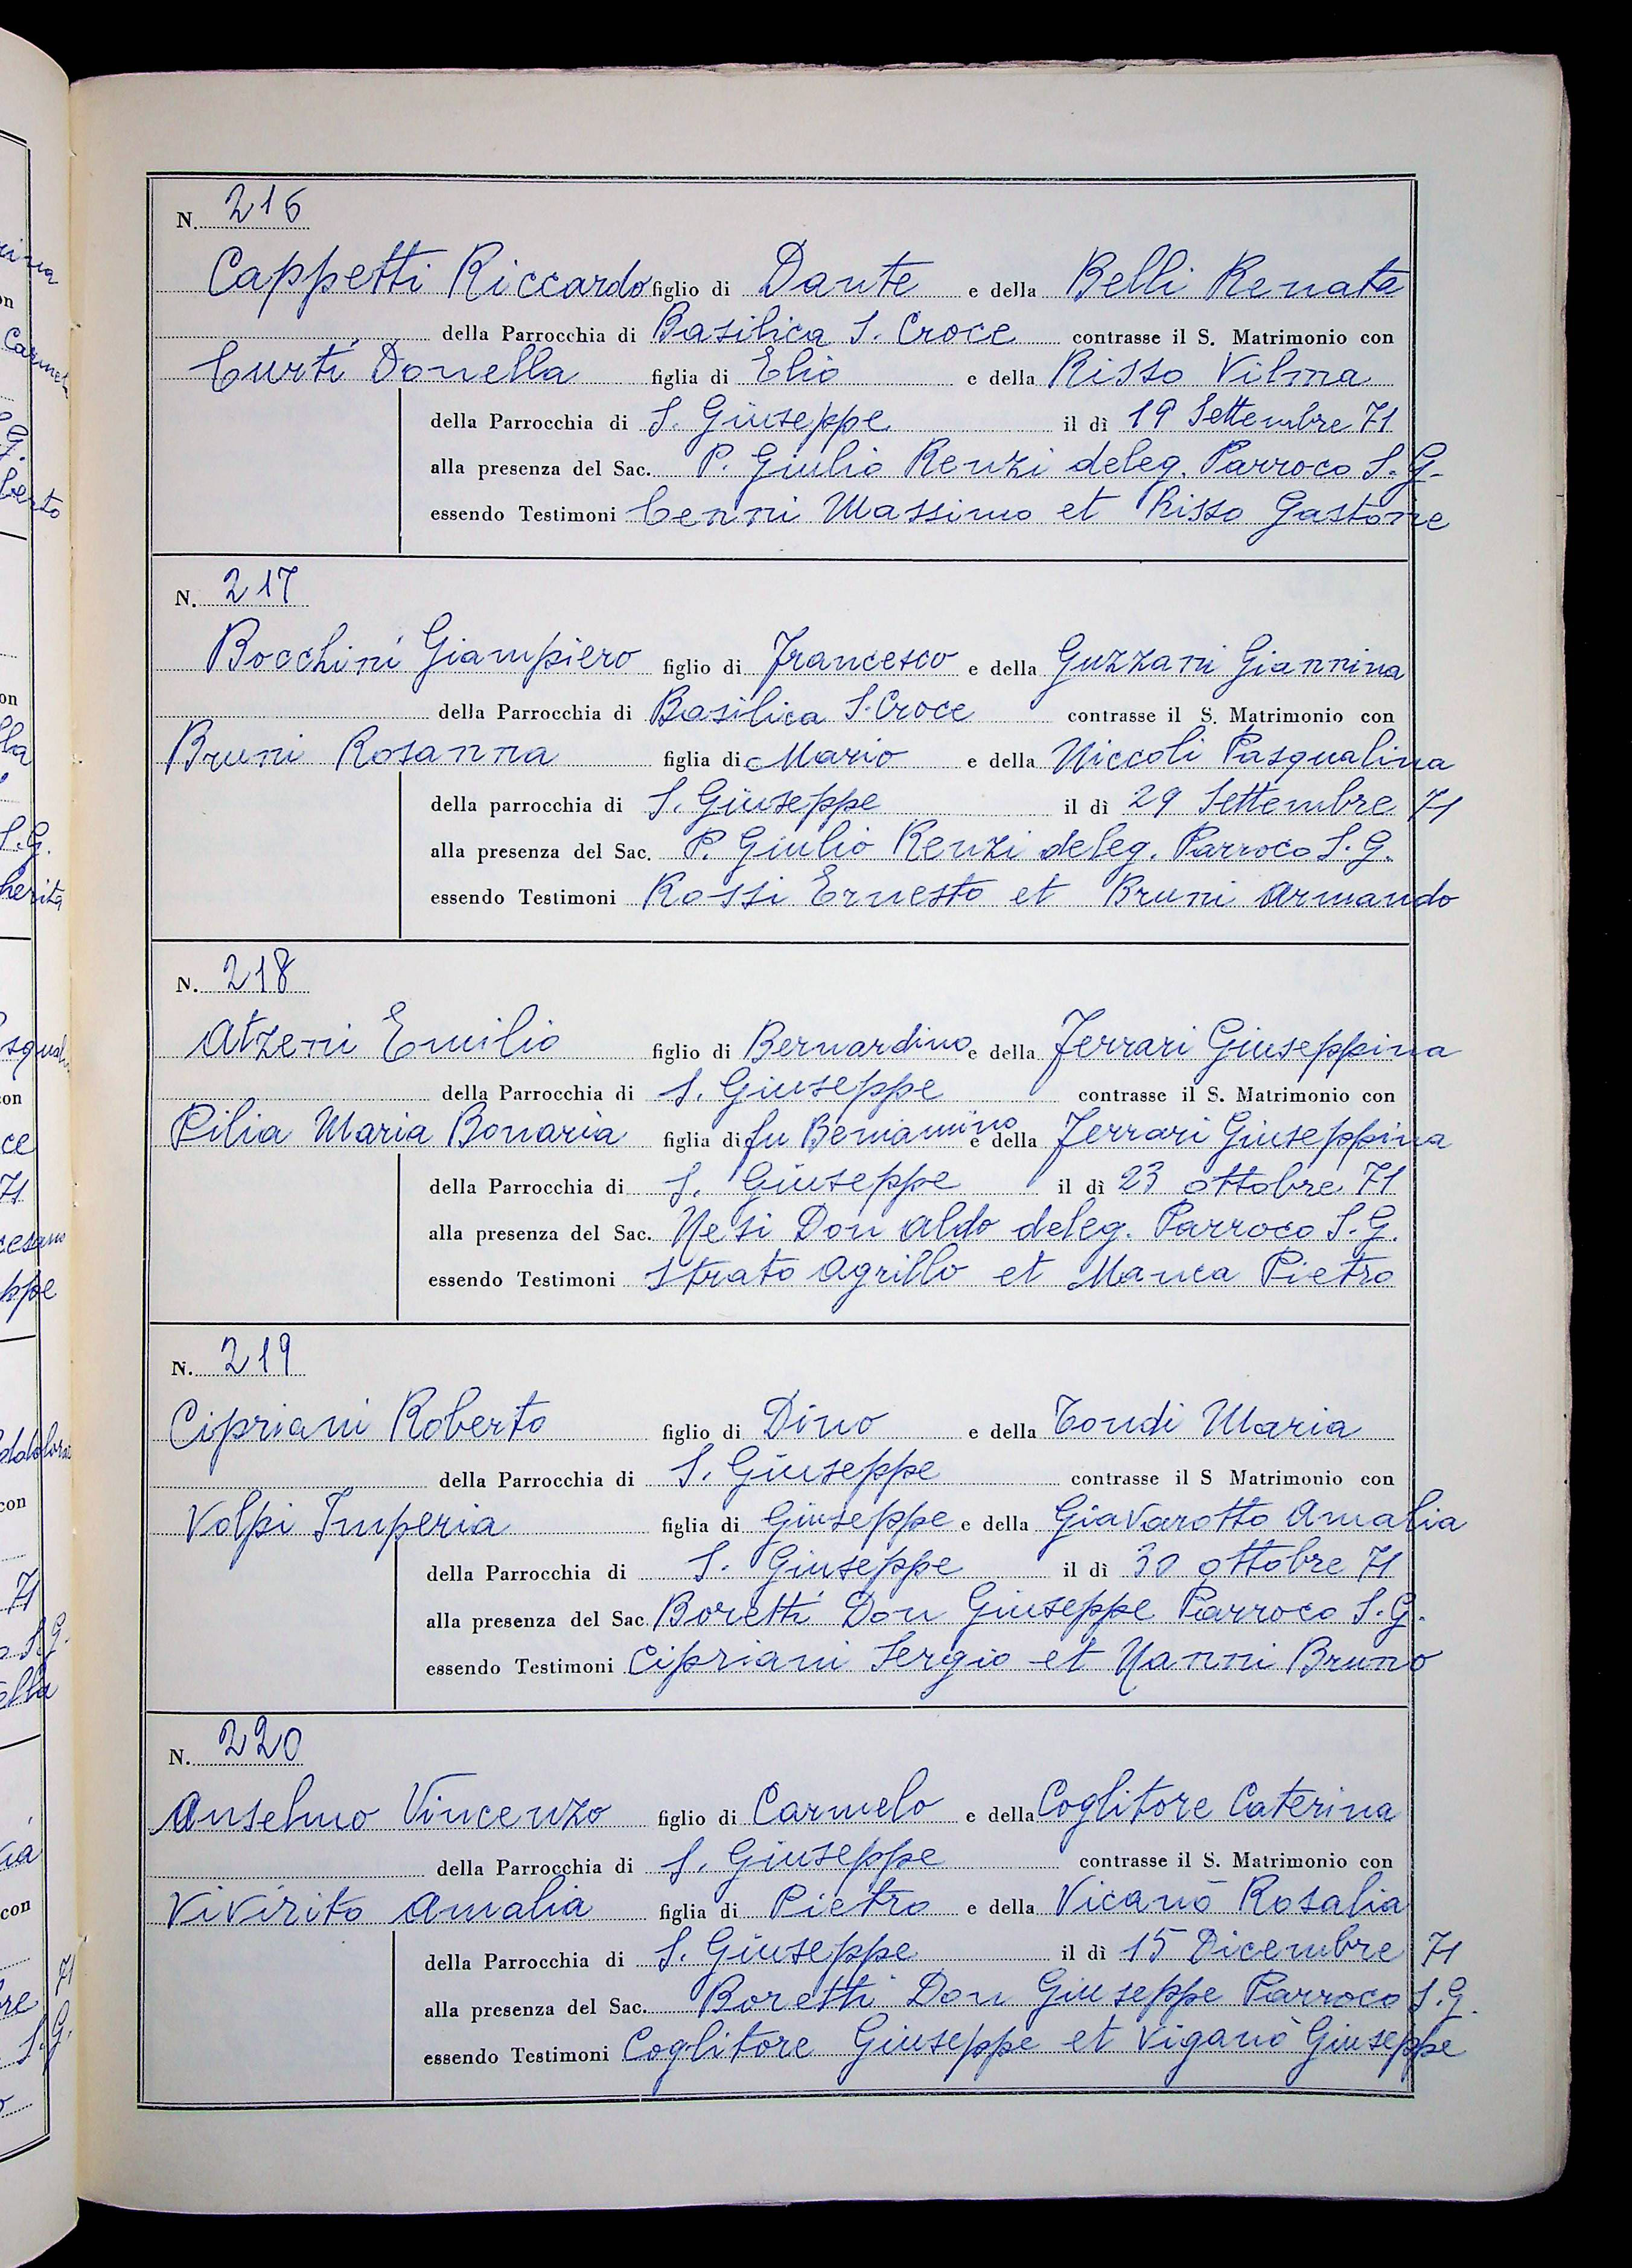 N. 216
Cappetti Riccardo figlio di Dante e della Belli Renata
della Parrocchia di Basilica S. Croce contrasse il S. Matrimonio con
Curti Donella figlia di Elio e della Risso Vilma
della Parrocchia di S. Giuseppe il dì 19 Settembre 71
alla presenza del Sac. P. Giulio Renzi deleg. Parroco S. G.
essendo Testimoni Cenni Massimo et Risso Gastone
N. 217
Bocchini Giampiero figlio di Francesco e della Guzzani Giannina
della Parrocchia di Basilica S. Croce contrasse il S. Matrimonio con
Bruni Rosanna figlia di Mario e della Niccoli Pasqualina
della parrocchia di S. Giuseppe il dì 29 Settembre 71
alla presenza del Sac. P. Giulio Renzi deleg. Parroco S. G.
essendo Testimoni Rossi Ernesto et Bruni Armando
N. 218
Atzeni Emilio figlio di Bernardino e della Ferrari Giuseppina
della Parrocchia di S. Giuseppe contrasse il S. Matrimonio con
Pilia Maria Bonaria figlia di fu Beniamino e della Ferrari Giuseppina
della Parrocchia di S. Giuseppe il dì 23 ottobre 71
alla presenza del Sac. Nesi Don Aldo deleg. Parroco S. G.
essendo Testimoni Strato Agrillo et Manca Pietro
N. 219
Cipriani Roberto figlio di Dino e della Tondi Maria
della Parrocchia di S. Giuseppe contrasse il S Matrimonio con
Volpi Imperia figlia di Giuseppe e della Giavarotto Amalia
della Parrocchia di S. Giuseppe il dì 30 ottobre 71
alla presenza del Sac. Boretti Don Giuseppe Parroco S. G.
essendo Testimoni Cipriani Sergio et Nanni Bruno
N. 220
Anselmo Vincenzo figlio di Carmelo e della Coglitore Caterina
della Parrocchia di S. Giuseppe contrasse il S. Matrimonio con
Vivirito Amalia figlia di Pietro e della Vicanò Rosalia
della Parrocchia di S. Giuseppe il dì 15 Dicembre 71
alla presenza del Sac. Boretti Don Giuseppe Parroco S. G.
essendo Testimoni Coglitore Giuseppe et Viganò Giuseppe